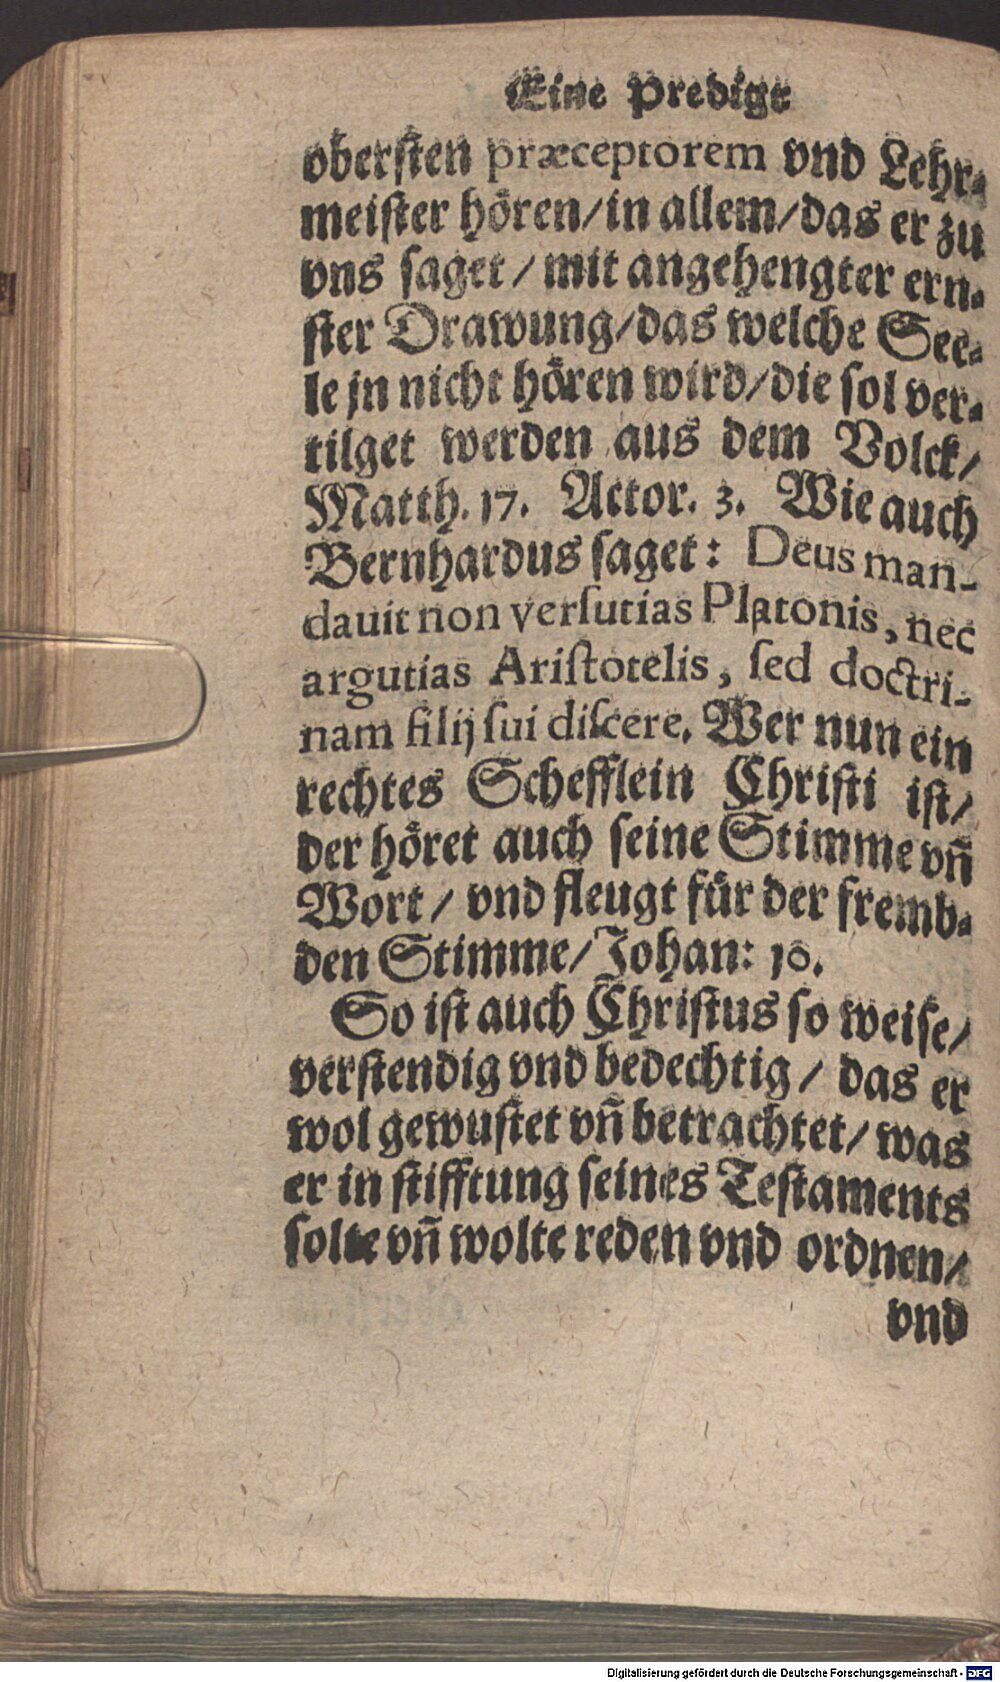 Eine Predigt
obersten præceptorem vnd Lehr⸗
meister hören/in allem/das er zu
vns saget/ mit angehengter ern⸗
ster Drawung/das welche See⸗
le jn nicht hören wird/die sol ver⸗
tilget werden aus dem Volck/
Matth. 17. Actor. 3. Wie auch
Bernhardus saget: Deus man-
dauit non versutias Platonis, nec
argutias Aristotelis, sed doctri-
nam filij sui discere. Wer nun ein
rechtes Schefflein Christi ist/
der höret auch seine Stimme vñ
Wort/ vnd fleugt für der fremb⸗
den Stimme/Johan: 10.
So ist auch Christus so weise/
verstendig vnd bedechtig/ das er
wol gewustet vñ betrachtet/ was
er in stifftung seines Testaments
solte vñ wolte reden vnd ordnen/
vnd
Digitalisierung gefördert durch die Deutsche Forschungsgemeinschaft - DFG